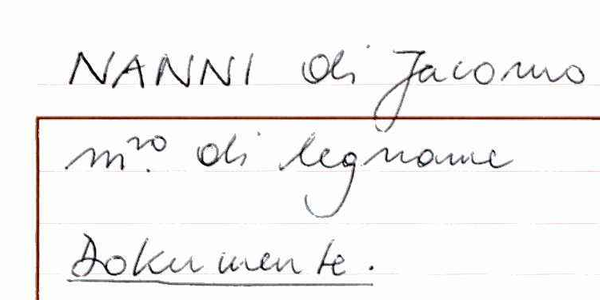 NANNI di Jacomo
mro. di legname
Dokumente.